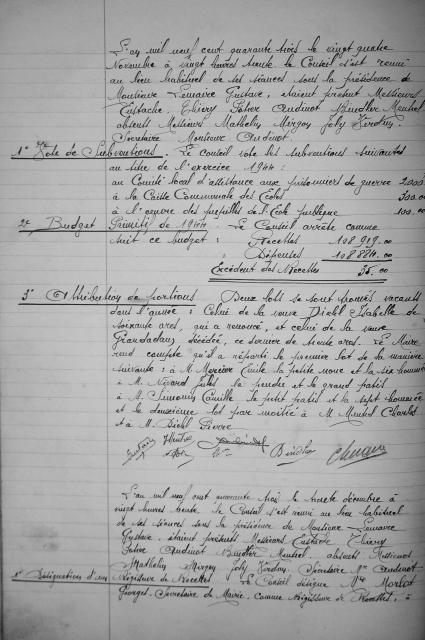 L'an mil neuf cent quarante trois le vingt quatre
Novembre à vingt heures trente le Conseil s'est réuni
au lieu habituel de ses séances sous la présidence de
Monsieur Lemaire Gustave, étaient présent Messieurs
Eustache, Thiery Audinot Mentrel
absents Messieurs Mathelin Joly
Secrétaire Monsieur Audinot
1° Vote de Subventions. Le Conseil vote les subventions suivantes
au titre de l'exercice 1944:
au Comité local d'assistance aux prisonniers de guerre 2000
à la Caisse Communale des Ecoles 300.00
à l'œuvre des pupilles de l'Ecole publique 100.00
2° Budget Primitif de 1944. Le Conseil arrête comme
suit ce budget: Recettes 108.919.00
" Dépenses 108.884.00
Excédent des Recettes 35.00
3° Attribution de portions Deux lots se sont trouvés vacants
dans l'année: Celui de la veuve Diehl Isabelle de
soixante ares, qui a renoncé, et celui de la veuve
Grandadam décédée, ce dernier de trente ares. Le Maire
rend compte qu'il a réparti le premier lot de la manière
suivante: à M. Emile la petite noue et la six
à M. Jules la pendue et le grand patis
à M. Simonin Camille le petit patis et la sept
et le deuxième lot par moitié à M. Mentrel Charles
et à M. Diehl Pierre
L'an mil neuf cent quarante trois le trente décembre à
vingt heures trente le Conseil s'est réuni au lieu habituel
de ses séances sous la présidence de Monsieur Lemaire
Gustave, étaient présents Messieurs Eustache Thiery
Audinot Mentrel. absents Messieurs
Mathelin Joly Secrétaire Mr Audinot
1° Désignation d'un Régisseur de Recettes Le Conseil désigne
Georges, Secrétaire de Mairie, comme Régisseur de Recettes, à